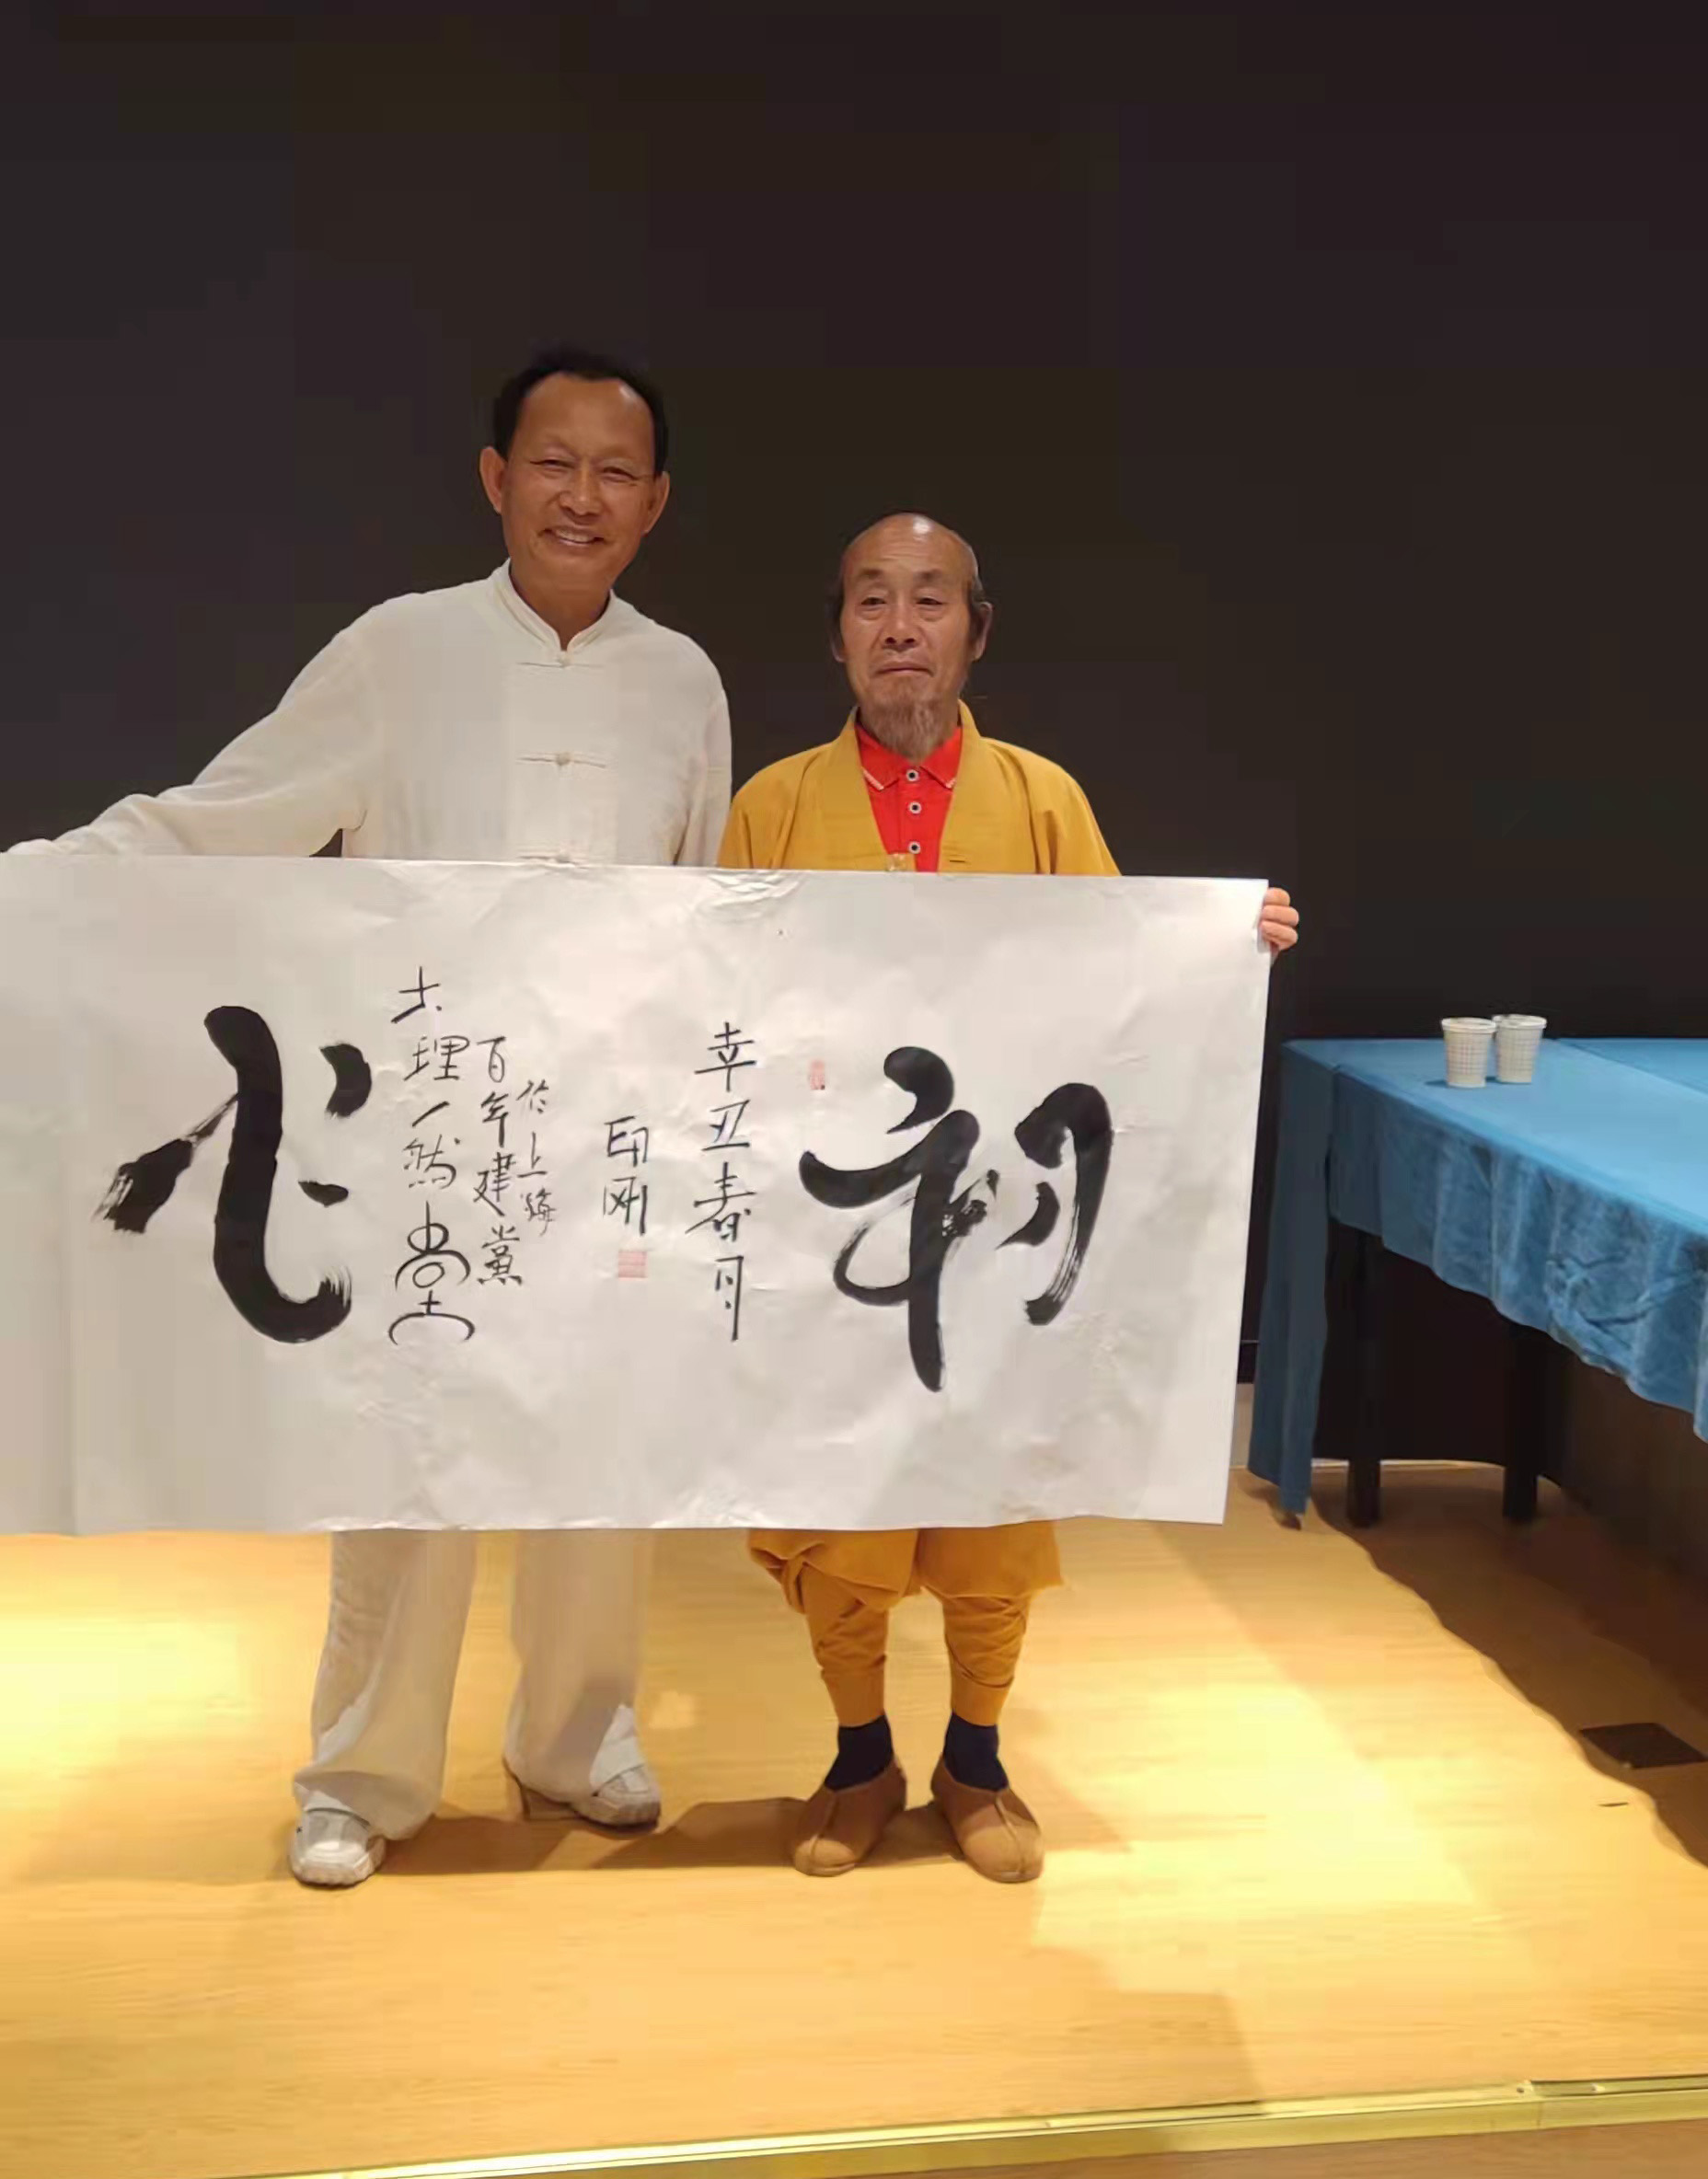 初
辛丑春月
印刚
於上海
百年建黨
大理一然堂
心